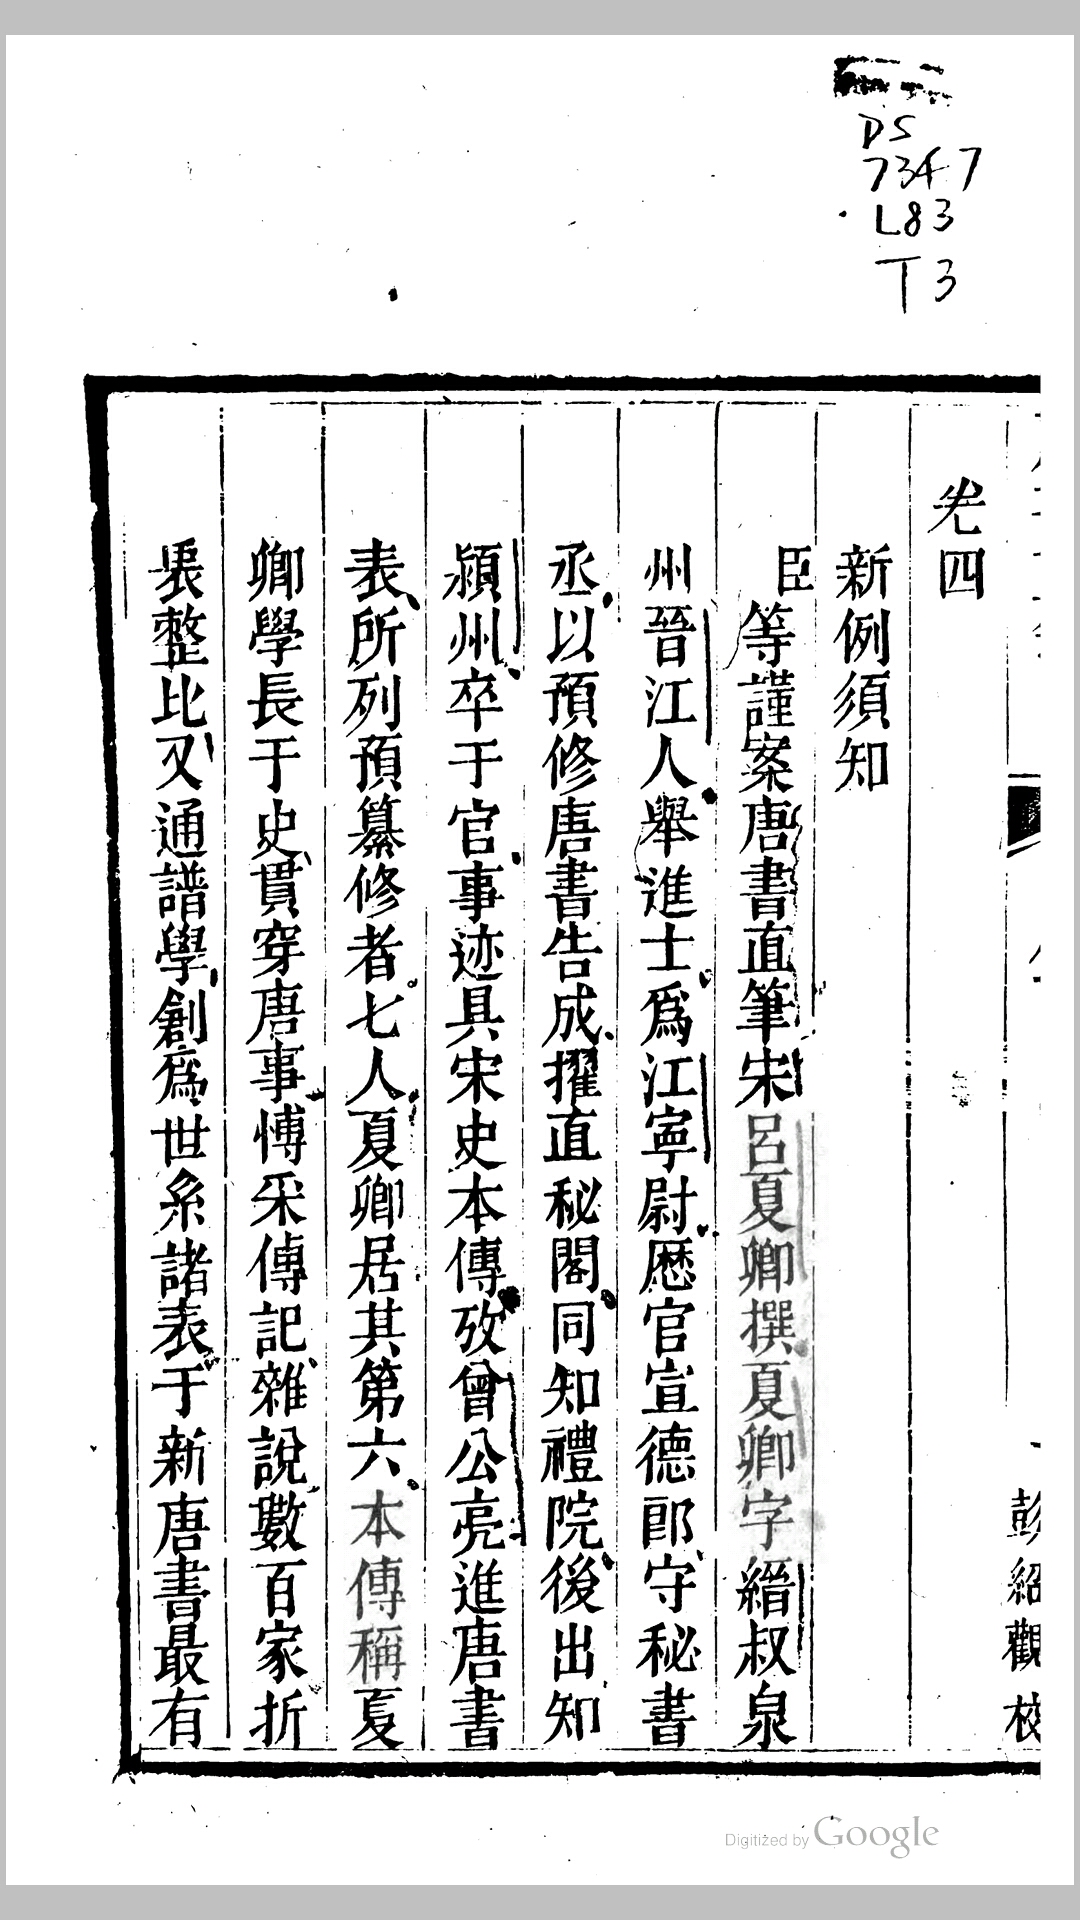 DS
7347
L83
T3
彭紹觀校
卷四
新例須知
臣等謹案唐書直筆宋呂夏卿撰夏卿字縉叔泉
州晉江人舉進士爲江寧尉歴官宣德郎守秘書
丞以預修唐書告成擢直秘閣同知禮院後出知
潁州卒于官事迹具宋史本傳攷曾公亮進唐書
表所列預纂修者七人夏卿居其第六本傳稱夏
卿學長于史貫穿唐事博采傳記雜說數百家折
衷整比又通譜學創爲世系諸表于新唐書最有
Digitized by Google